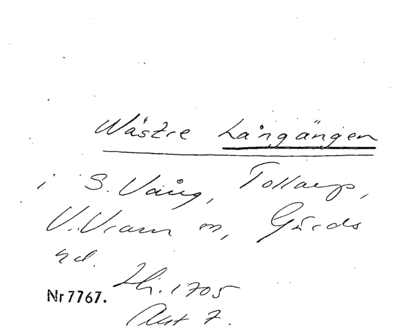 Wästre Långängen
i S. Vång, Tollarp,
V. Vram m, Gärds
hd.
Nr 7767. Hi. 1705
Akt 7.